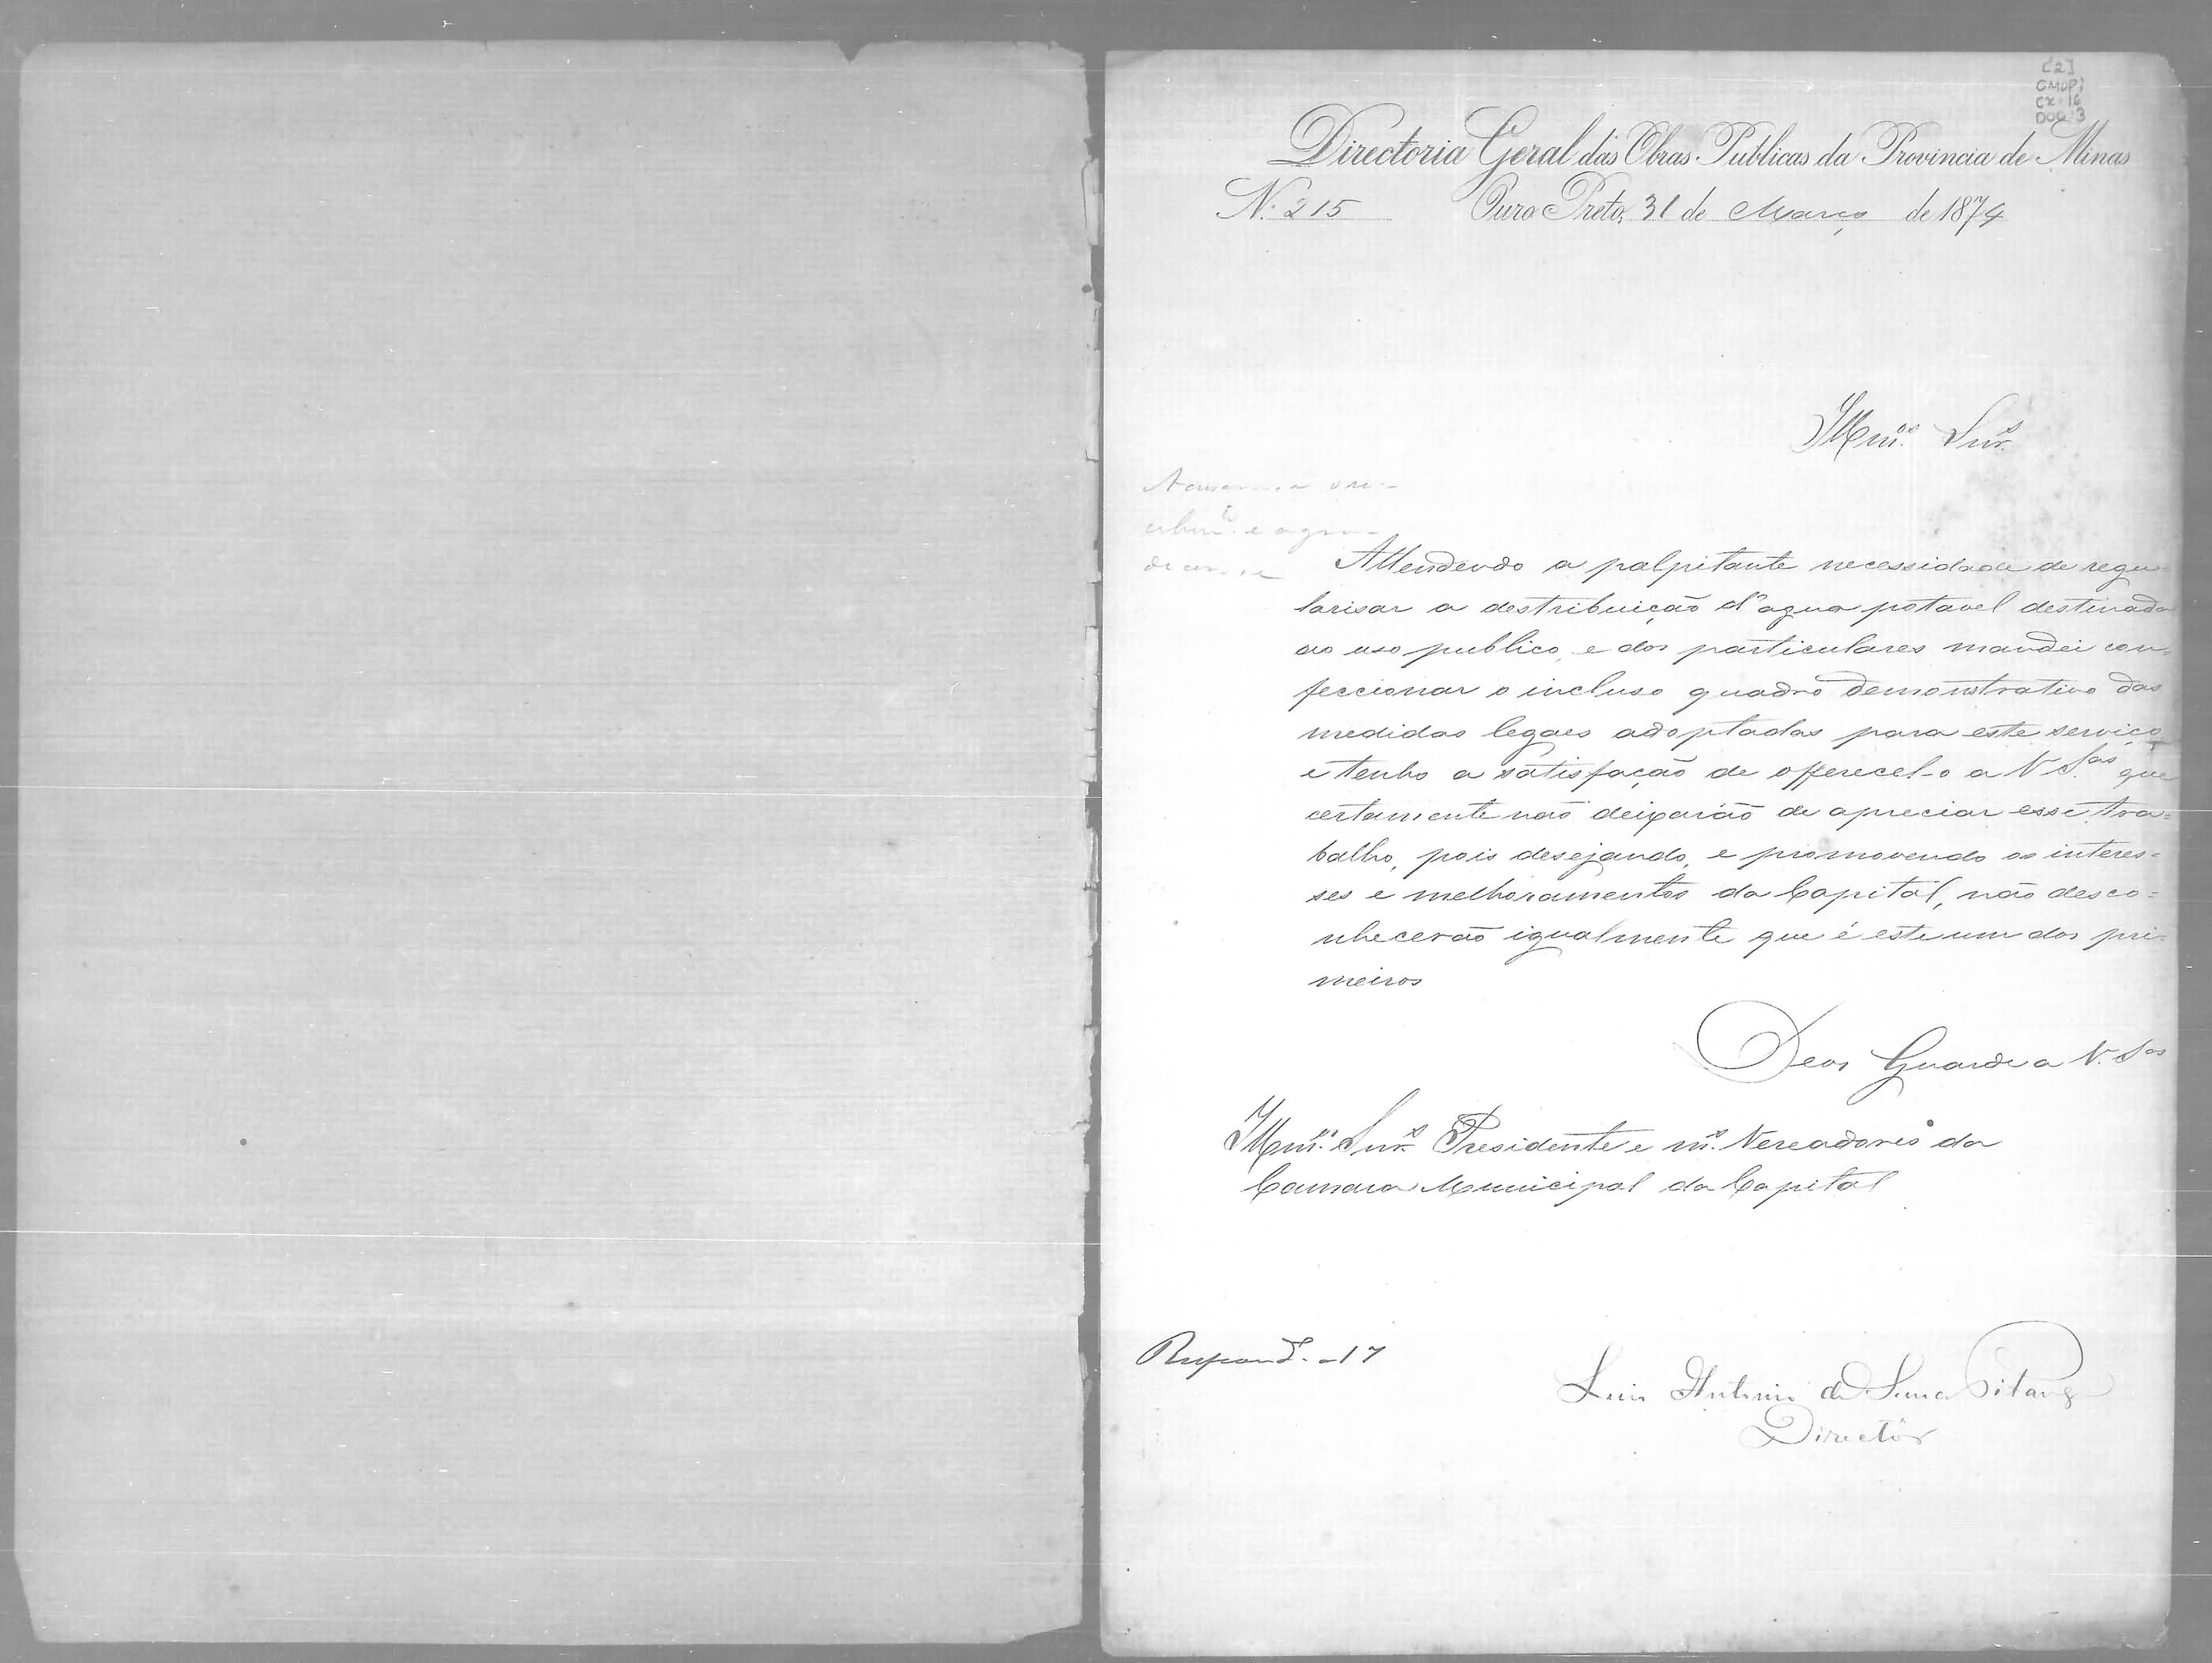 [2]
CMOP1
CX. 16
DOC. 3
Directoria Geral das Obras Publicas da Provincia de Minas
N. 215 Ouro Preto, 31 de Março de 1874
Illmos. Snrs.
Attendendo a palpitante necessidade de regu=
larisar a destribuição d'agua potavel destinada
ao uso publico, e dos particulares mandei con=
feccionar o incluso quadro demonstrativo das
medidas legaes adoptadas para este serviço
e tenho a satisfação de offerecel-o a V. S.as que
certamente não deixarão de apreciar esse tra=
balho, pois desejando, e promovendo os interes=
ses e melhoramentos da Capital, não desco=
nhecerão igualmente que é este um dos pri=
meiros
Deos Guarde a V. S.as
Illmos. Snrs. Presidente e m.s Vereadores da
Camara Municipal da Capital
Respond. 17
Luis Antonio de Souza Pitanga
Director